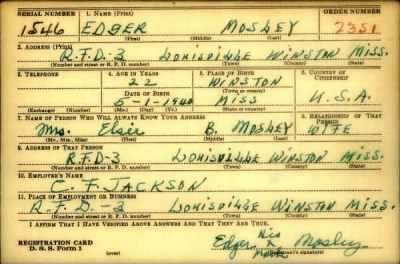 SERIAL NUMBER 1. NAME (Print) ORDER NUMBER
1546 EDGER MOSLEY 2351
(First) (Middle) (Last)
2. ADDRESS (Print)
R.F.D-3 LOUISVILLE WINSTON MISS.
(Number and street or R. F. D. number) (Town) (County) (State)
3. TELEPHONE 4. AGE IN YEARS 5. PLACE OF BIRTH 6. COUNTRY OF CITIZENSHIP
22 WINSTON
DATE OF BIRTH (Town or county)
5-1-1940 MISS U.S.A.
(Exchange) (Number) (Mo.) (Day) (Yr.) (State or country)
7. NAME OF PERSON WHO WILL ALWAYS KNOW YOUR ADDRESS 8. RELATIONSHIP OF THAT PERSON
Mrs. Elsie B. MOSLEY WIFE
(Mr., Mrs., Miss) (First) (Middle) (Last)
9. ADDRESS OF THAT PERSON
R.F.D-3 LOUISVILLE WINSTON MISS.
(Number and street or R. F. D. number) (Town) (County) (State)
10. EMPLOYER'S NAME
C. F. JACKSON
11. PLACE OF EMPLOYMENT OR BUSINESS
R.F.D.-3 LOUISVILLE WINSTON MISS.
(Number and street or R. F. D. number) (Town) (County) (State)
I AFFIRM THAT I HAVE VERIFIED ABOVE ANSWERS AND THAT THEY ARE TRUE.
REGISTRATION CARD
D. S. S. Form 1
his
Edger X Mosley
mark
(Registrant's signature)